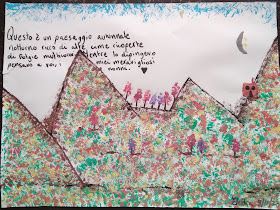 Questo è un paesaggio autunnale
notturno ricco di alte cime ricoperte
di foglie multicolori. Mentre lo dipingevo
pensavo a voi, miei meravigliosi
nonni.